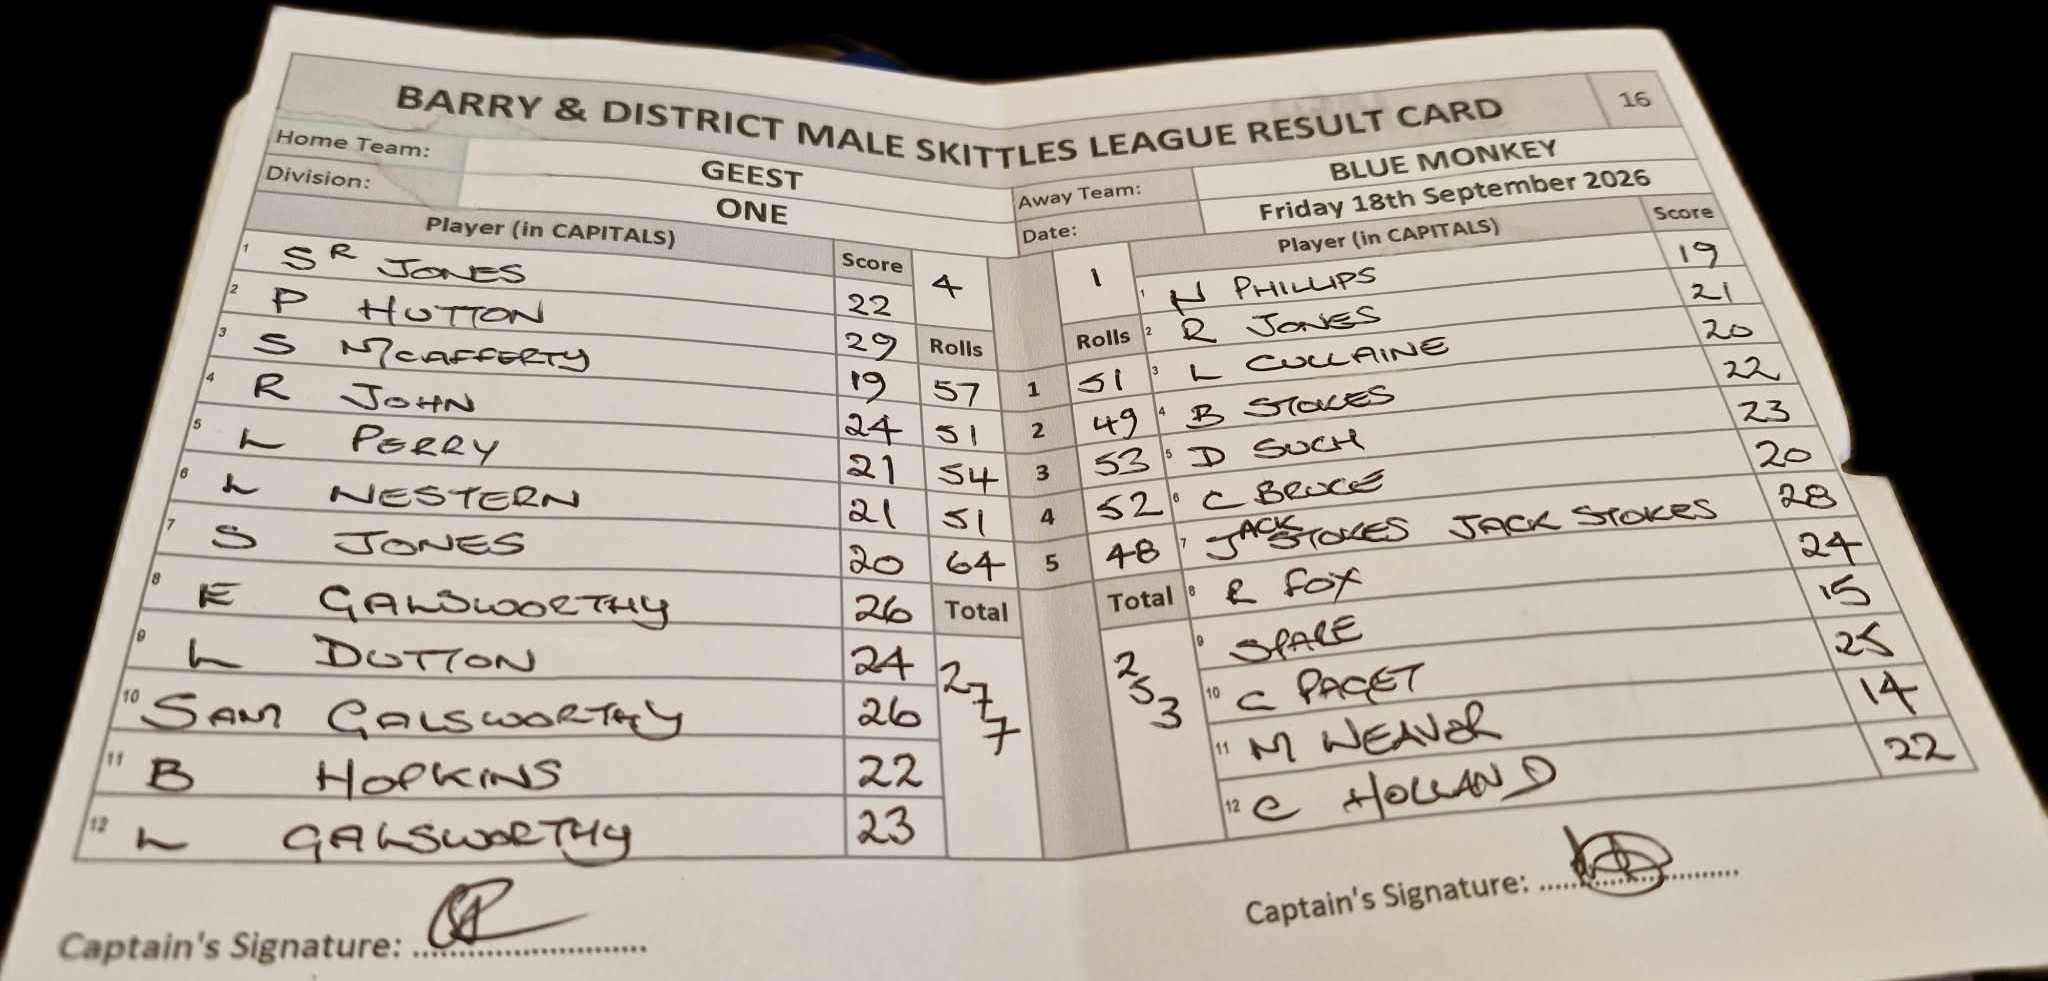 BARRY & DISTRICT MALE SKITTLES LEAGUE RESULT CARD 16
Home Team: GEEST Away Team: BLUE MONKEY
Division: ONE Date: Friday 18th September 2026
Player (in CAPITALS) Score 4 1 Player (in CAPITALS) Score
1 SR JONES 22 1 N PHILLIPS 19
2 P HUTTON 29 Rolls Rolls 2 R JONES 21
3 S McCAFFERTY 19 57 1 51 3 L CULLAINE 20
4 R JOHN 24 51 2 49 4 B STOKES 22
5 L PERRY 21 54 3 53 5 D SUCH 23
6 L NESTERN 21 51 4 52 6 C BRUCE 20
7 S JONES 20 64 5 48 7 JACK STOKES JACK STOKES 28
8 E GALSWORTHY 26 Total Total 8 R FOX 24
9 L DUTTON 24 277 253 9 SPARE 15
10 SAM GALSWORTHY 26 10 C PAGET 25
11 B HOPKINS 22 11 M WEAVER 14
12 L GALSWORTHY 23 12 C HOLLAND 22
Captain's Signature: Captain's Signature: